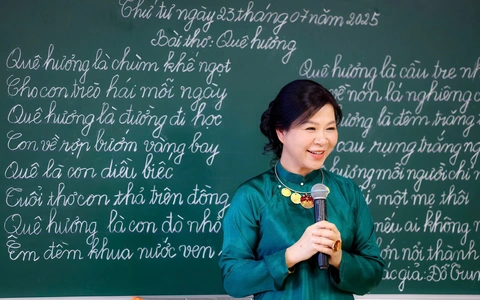 Thứ tư ngày 23 tháng 07 năm 2025
Bài thơ: Quê hương
Quê hương là chùm khế ngọt
Cho con trèo hái mỗi ngày
Quê hương là đường đi học
Con về rợp bướm vàng bay
Quê là con diều biếc
Tuổi thơ con thả trên đồng
Quê hương là con đò nhỏ
Êm đềm khua nước ven
Quê hương là cầu tre nh
về nón lá nghiêng c
hương là đêm trăng t
cau rụng trắng n
hương mỗi người chỉ m
một mẹ thôi
nếu ai không n
lớn nổi thành
giả: Đỗ Trun